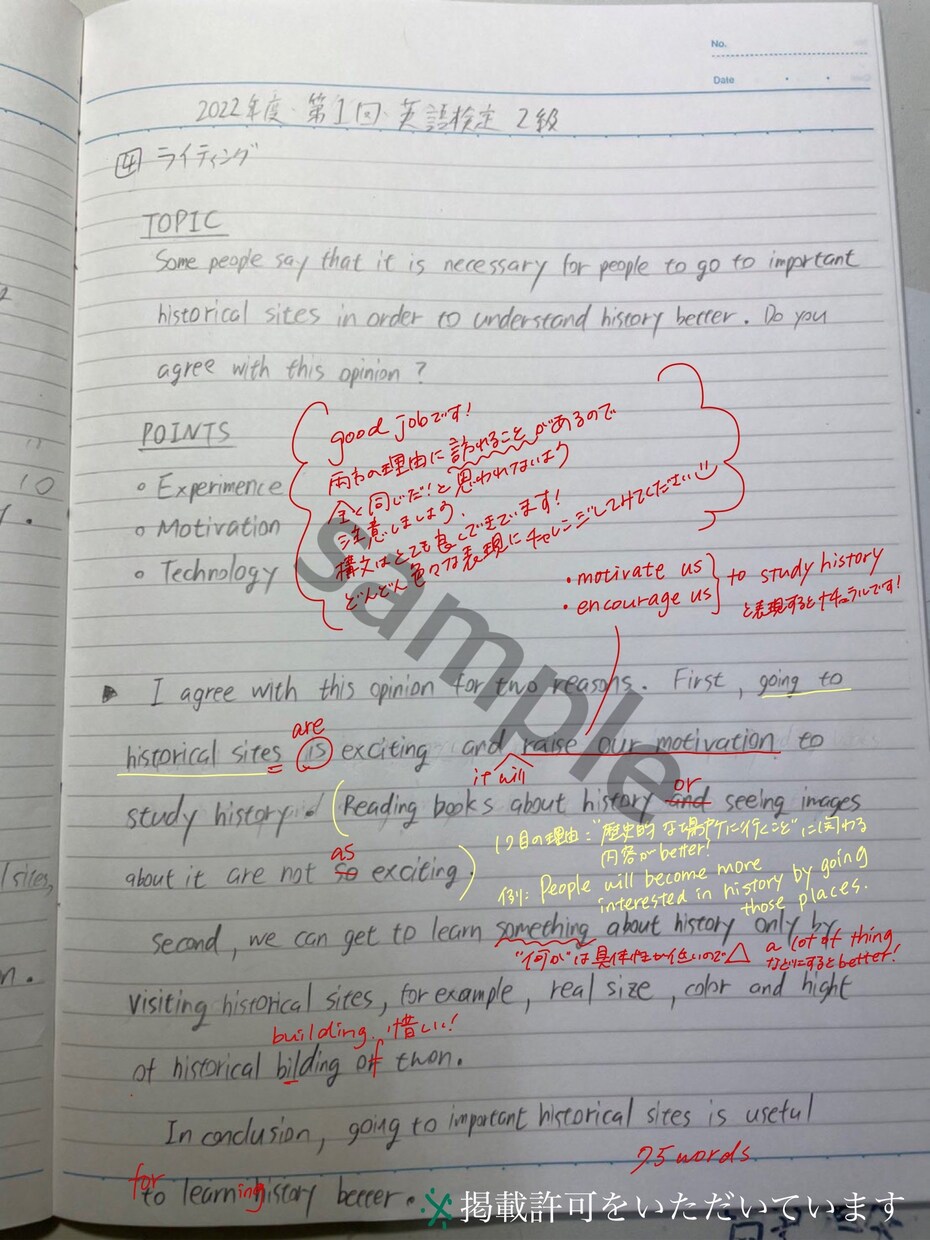 No.
Date
2022年度 第1回 英語検定 2級
4 ライティング
TOPIC
Some people say that it is necessary for people to go to important
historical sites in order to understand history better. Do you
agree with this opinion?
POINTS
○ Experimence
○ Motivation
○ Technology
good jobです!
両方の理由に言われることがあるので
全く同じだ!と思われないよう
注意しましょう.
構文はとても良くできています!
どんどん色々な表現にチャレンジしてみてください
・motivate us
・encourage us
to study history
と表現するとナチュラルです!
sample
I agree with this opinion for two reasons. First, going to
are
historical sites is exciting and raise our motivation to
it will
or
study history. (Reading books about history and seeing images
as
about it are not so exciting.)
1つ目の理由:"歴史的な場所に行くこと"に関わる
内容がbetter!
例: People will become more
interested in history by going
those places.
second, we can get to learn something about history only by
"何か"は具体性が低いので△
a lot of thing
などにするとbetter!
visiting historical sites, for example, real size, color and hight
building 惜しい!
of historical bilding of twon.
In conclusion, going to important historical sites is useful
75 words
for
to learning istory better.
※掲載許可をいただいています
10
sites,